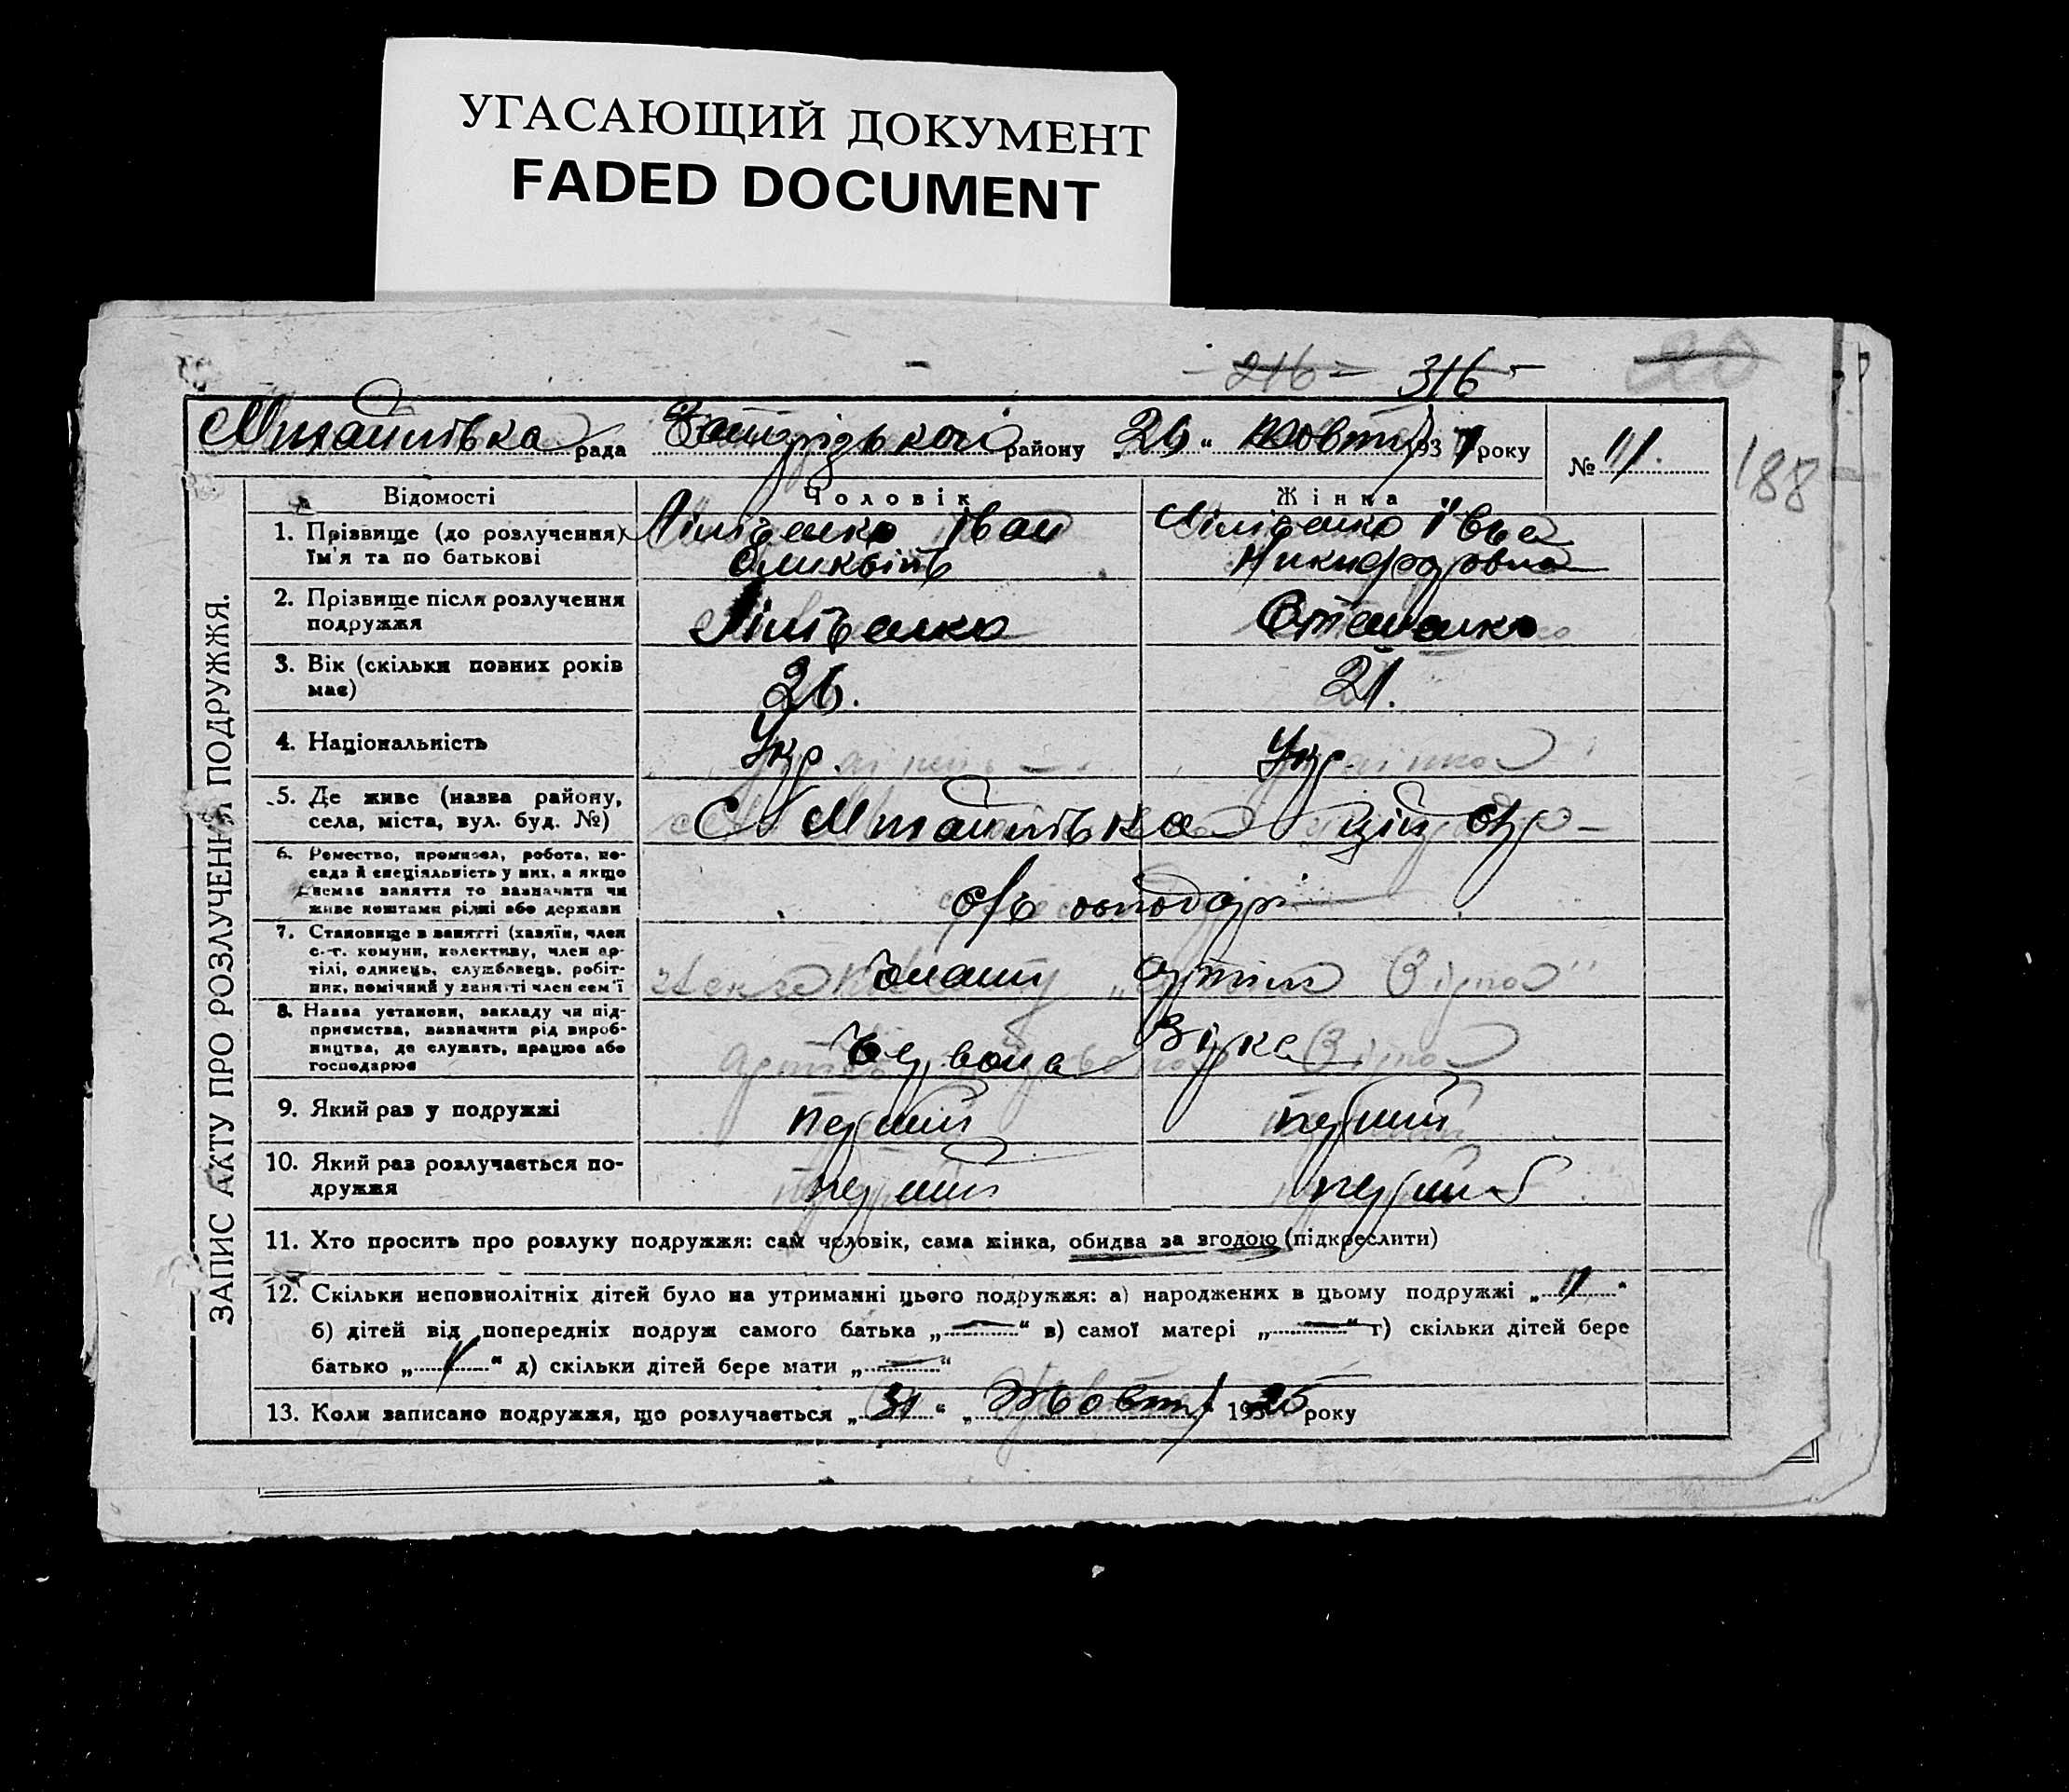 УГАСАЮЩИЙ ДОКУМЕНТ
FADED DOCUMENT
216 - 316 -
20
Михайлівка рада району 26 " Жовтня 1931 року № 11.
188
ЗАПИС АКТУ ПРО РОЗЛУЧЕННЯ ПОДРУЖЖЯ.
Відомості Чоловік Жінка
1. Прізвище (до розлучення) Іван
Їм'я та по батькові Никифоровна
2. Прізвище після розлучення
подружжя
3. Вік (скільки повних років 26. 21.
має)
4. Національність Укр. Укр.
5. Де живе (назва району, С Михайлівка
села, міста, вул. буд. №)
6. Ремество, промисел, робота, по-
сада й спеціяльність у них, а якщо
немає заняття то зазначити чи
живе коштами рідні або держави
7. Становище в занятті (хазяїн, член
с.-г. комуни, колективу, член ар- члени артіли
тілі, одинець, службовець, робіт-
ник, помічний у занятті член сем'ї
8. Назва установи, закладу чи під-
приємства, визначити рід вироб- Червона Зірка
ництва, де служить, працює або
господарює
9. Який раз у подружжі перший перший
10. Який раз розлучається по- перший перший
дружжя
11. Хто просить про розлуку подружжя: сам чоловік, сама жінка, обидва за згодою (підкреслити)
12. Скільки неповнолітніх дітей було на утриманні цього подружжя: а) народжених в цьому подружжі „ "
б) дітей від попередніх подруж самого батька „—" в) самої матері „—" г) скільки дітей бере
батько „ " д) скільки дітей бере мати „—"
13. Коли записано подружжя, що розлучається „31" „Жовтня" 1925 року